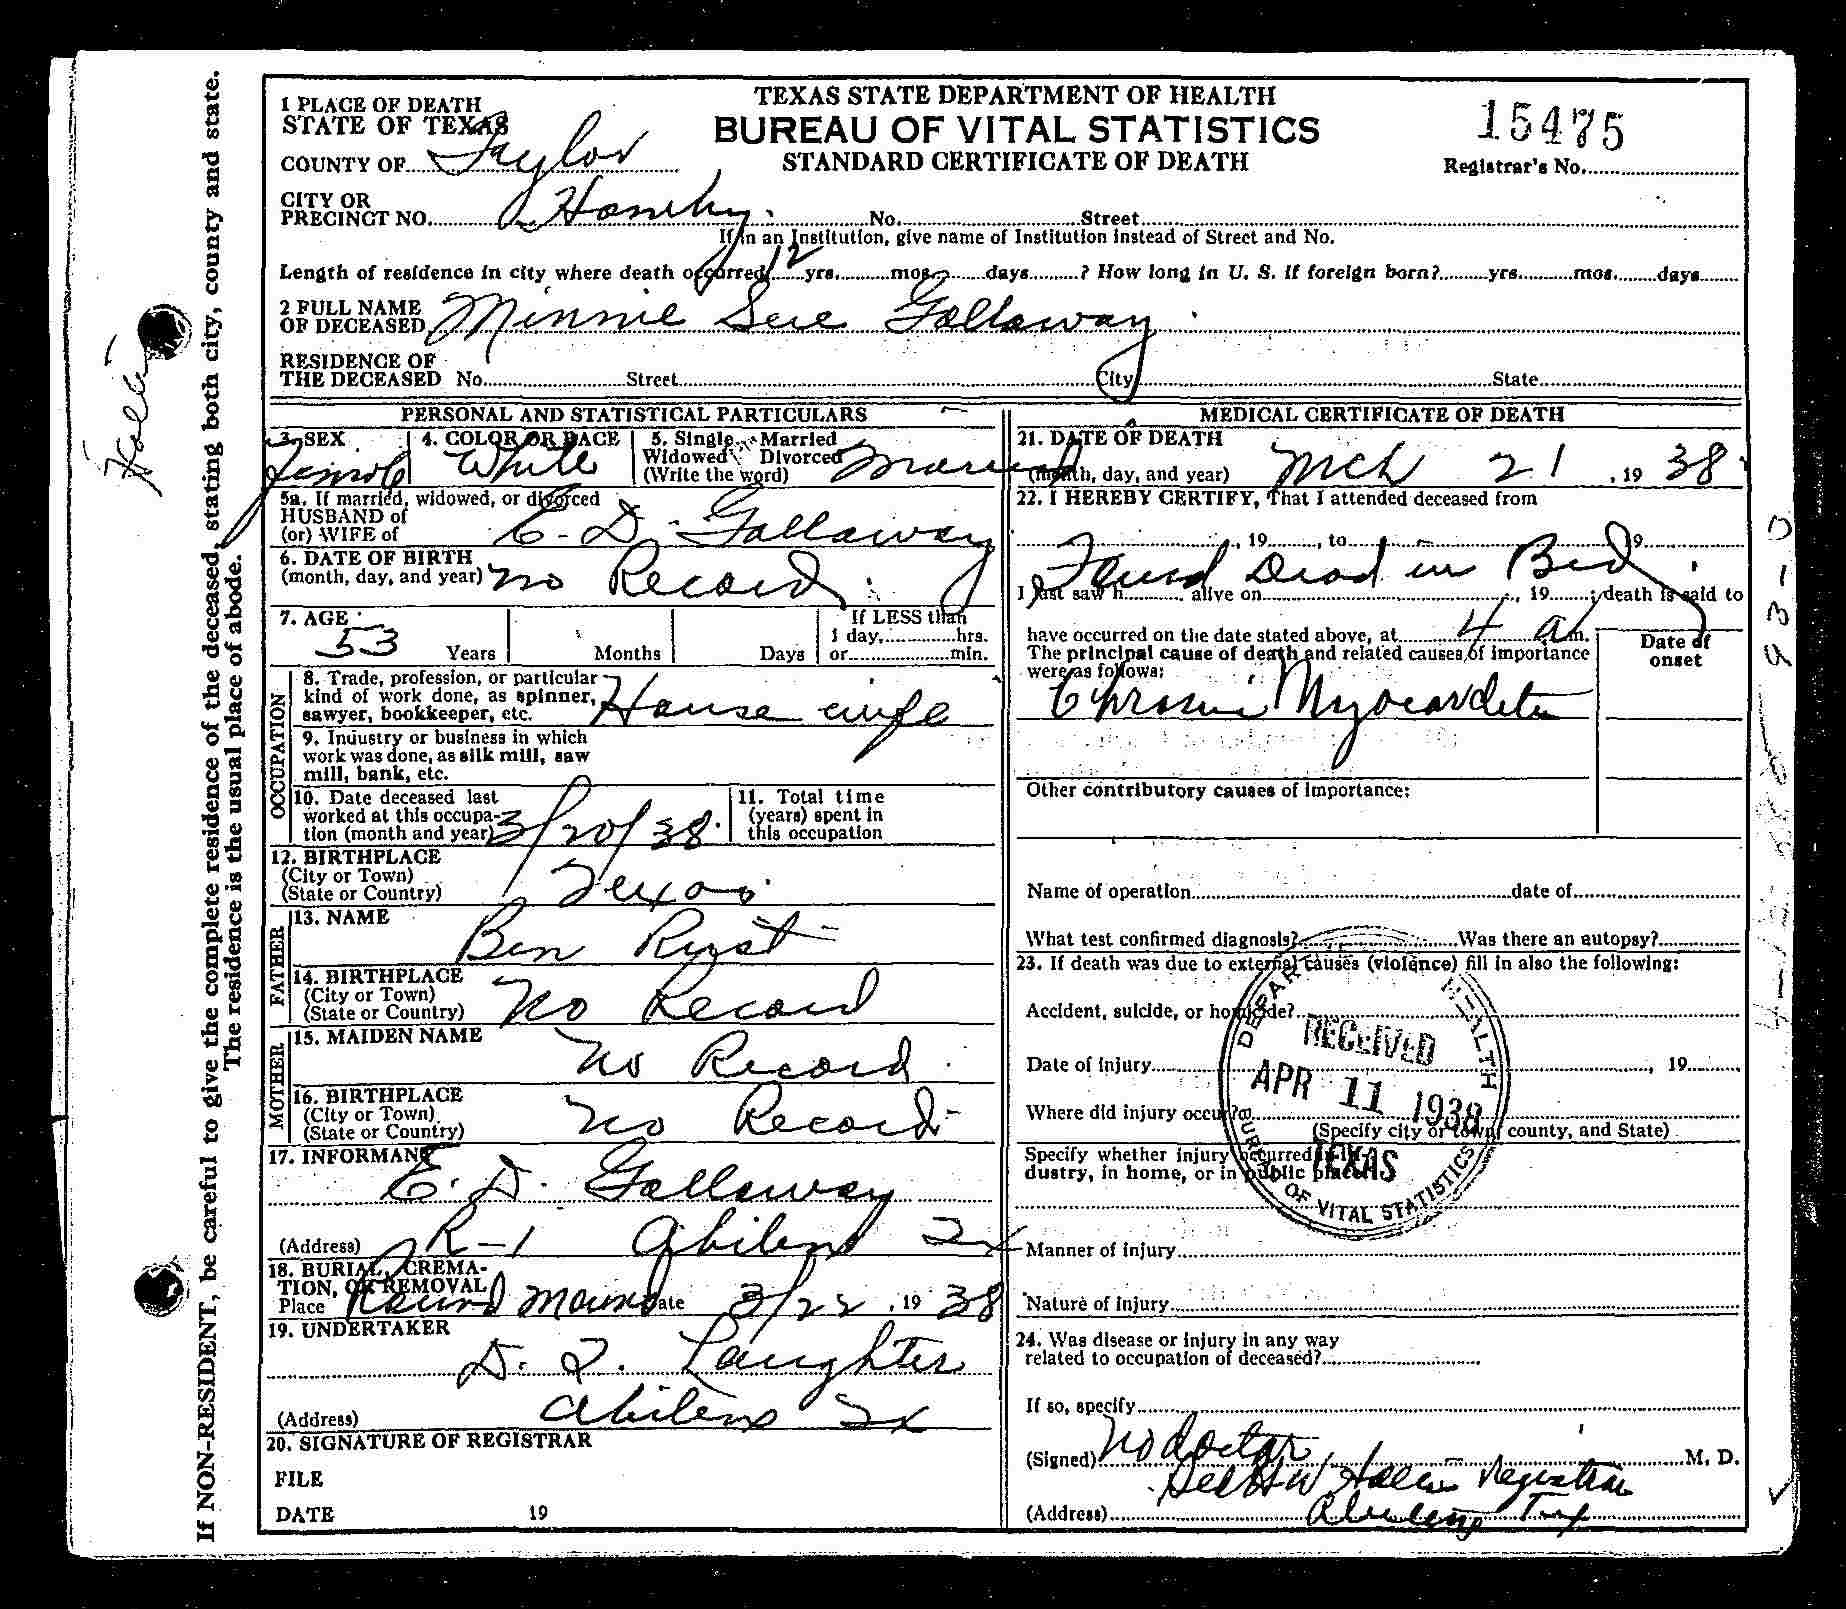 TEXAS STATE DEPARTMENT OF HEALTH
BUREAU OF VITAL STATISTICS
STANDARD CERTIFICATE OF DEATH
15475
Registrar's No.
1 PLACE OF DEATH
STATE OF TEXAS
COUNTY OF Taylor
CITY OR
PRECINCT NO. Hawley. No. Street
If in an Institution, give name of Institution instead of Street and No.
Length of residence in city where death occurred 12 yrs. mos. days ? How long in U. S. if foreign born? yrs. mos. days
2 FULL NAME
OF DECEASED Minnie Sue Gallaway
RESIDENCE OF
THE DECEASED No. Street City State
PERSONAL AND STATISTICAL PARTICULARS
3. SEX 4. COLOR OR RACE 5. Single Married
Widowed Divorced
(Write the word)
Female White Married
5a. If married, widowed, or divorced
HUSBAND of
(or) WIFE of E. D. Gallaway
6. DATE OF BIRTH
(month, day, and year) No Record
7. AGE If LESS than
53 Years Months Days 1 day, hrs.
or min.
OCCUPATION
8. Trade, profession, or particular
kind of work done, as spinner,
sawyer, bookkeeper, etc. House wife
9. Industry or business in which
work was done, as silk mill, saw
mill, bank, etc.
10. Date deceased last
worked at this occupa-
tion (month and year) 3/20/38
11. Total time
(years) spent in
this occupation
12. BIRTHPLACE
(City or Town)
(State or Country) Texas
FATHER
13. NAME Ben Rust
14. BIRTHPLACE
(City or Town)
(State or Country) No Record
MOTHER
15. MAIDEN NAME No Record
16. BIRTHPLACE
(City or Town)
(State or Country) No Record
17. INFORMANT
E. D. Gallaway
(Address) R-1 Abilene Tx
18. BURIAL, CREMA-
TION, OR REMOVAL
Place Round Mound Date 3/22, 19 38
19. UNDERTAKER
D. L. Laughter
(Address) Abilene Tx
20. SIGNATURE OF REGISTRAR
FILE
DATE 19
MEDICAL CERTIFICATE OF DEATH
21. DATE OF DEATH
(month, day, and year) Mch 21, 19 38
22. I HEREBY CERTIFY, That I attended deceased from
, 19 , to 19
Found Dead in Bed
I last saw h alive on , 19 ; death is said to
have occurred on the date stated above, at 4 a m.
The principal cause of death and related causes of importance
were as follows:
Date of
onset
Chronic Myocarditis
Other contributory causes of importance:
Name of operation date of
What test confirmed diagnosis? Was there an autopsy?
23. If death was due to external causes (violence) fill in also the following:
Accident, suicide, or homicide?
Date of injury , 19
Where did injury occur?
(Specify city or town, county, and State)
Specify whether injury occurred in in-
dustry, in home, or in public place.
Manner of injury
Nature of injury
24. Was disease or injury in any way
related to occupation of deceased?
If so, specify
(Signed) No doctor M. D.
Registrar
(Address) Abilene Tex
DEPAR HEALTH
RECEIVED
APR 11 1938
TEXAS
BUREAU OF VITAL STATISTICS
If NON-RESIDENT, be careful to give the complete residence of the deceased, stating both city, county and state.
The residence is the usual place of abode.